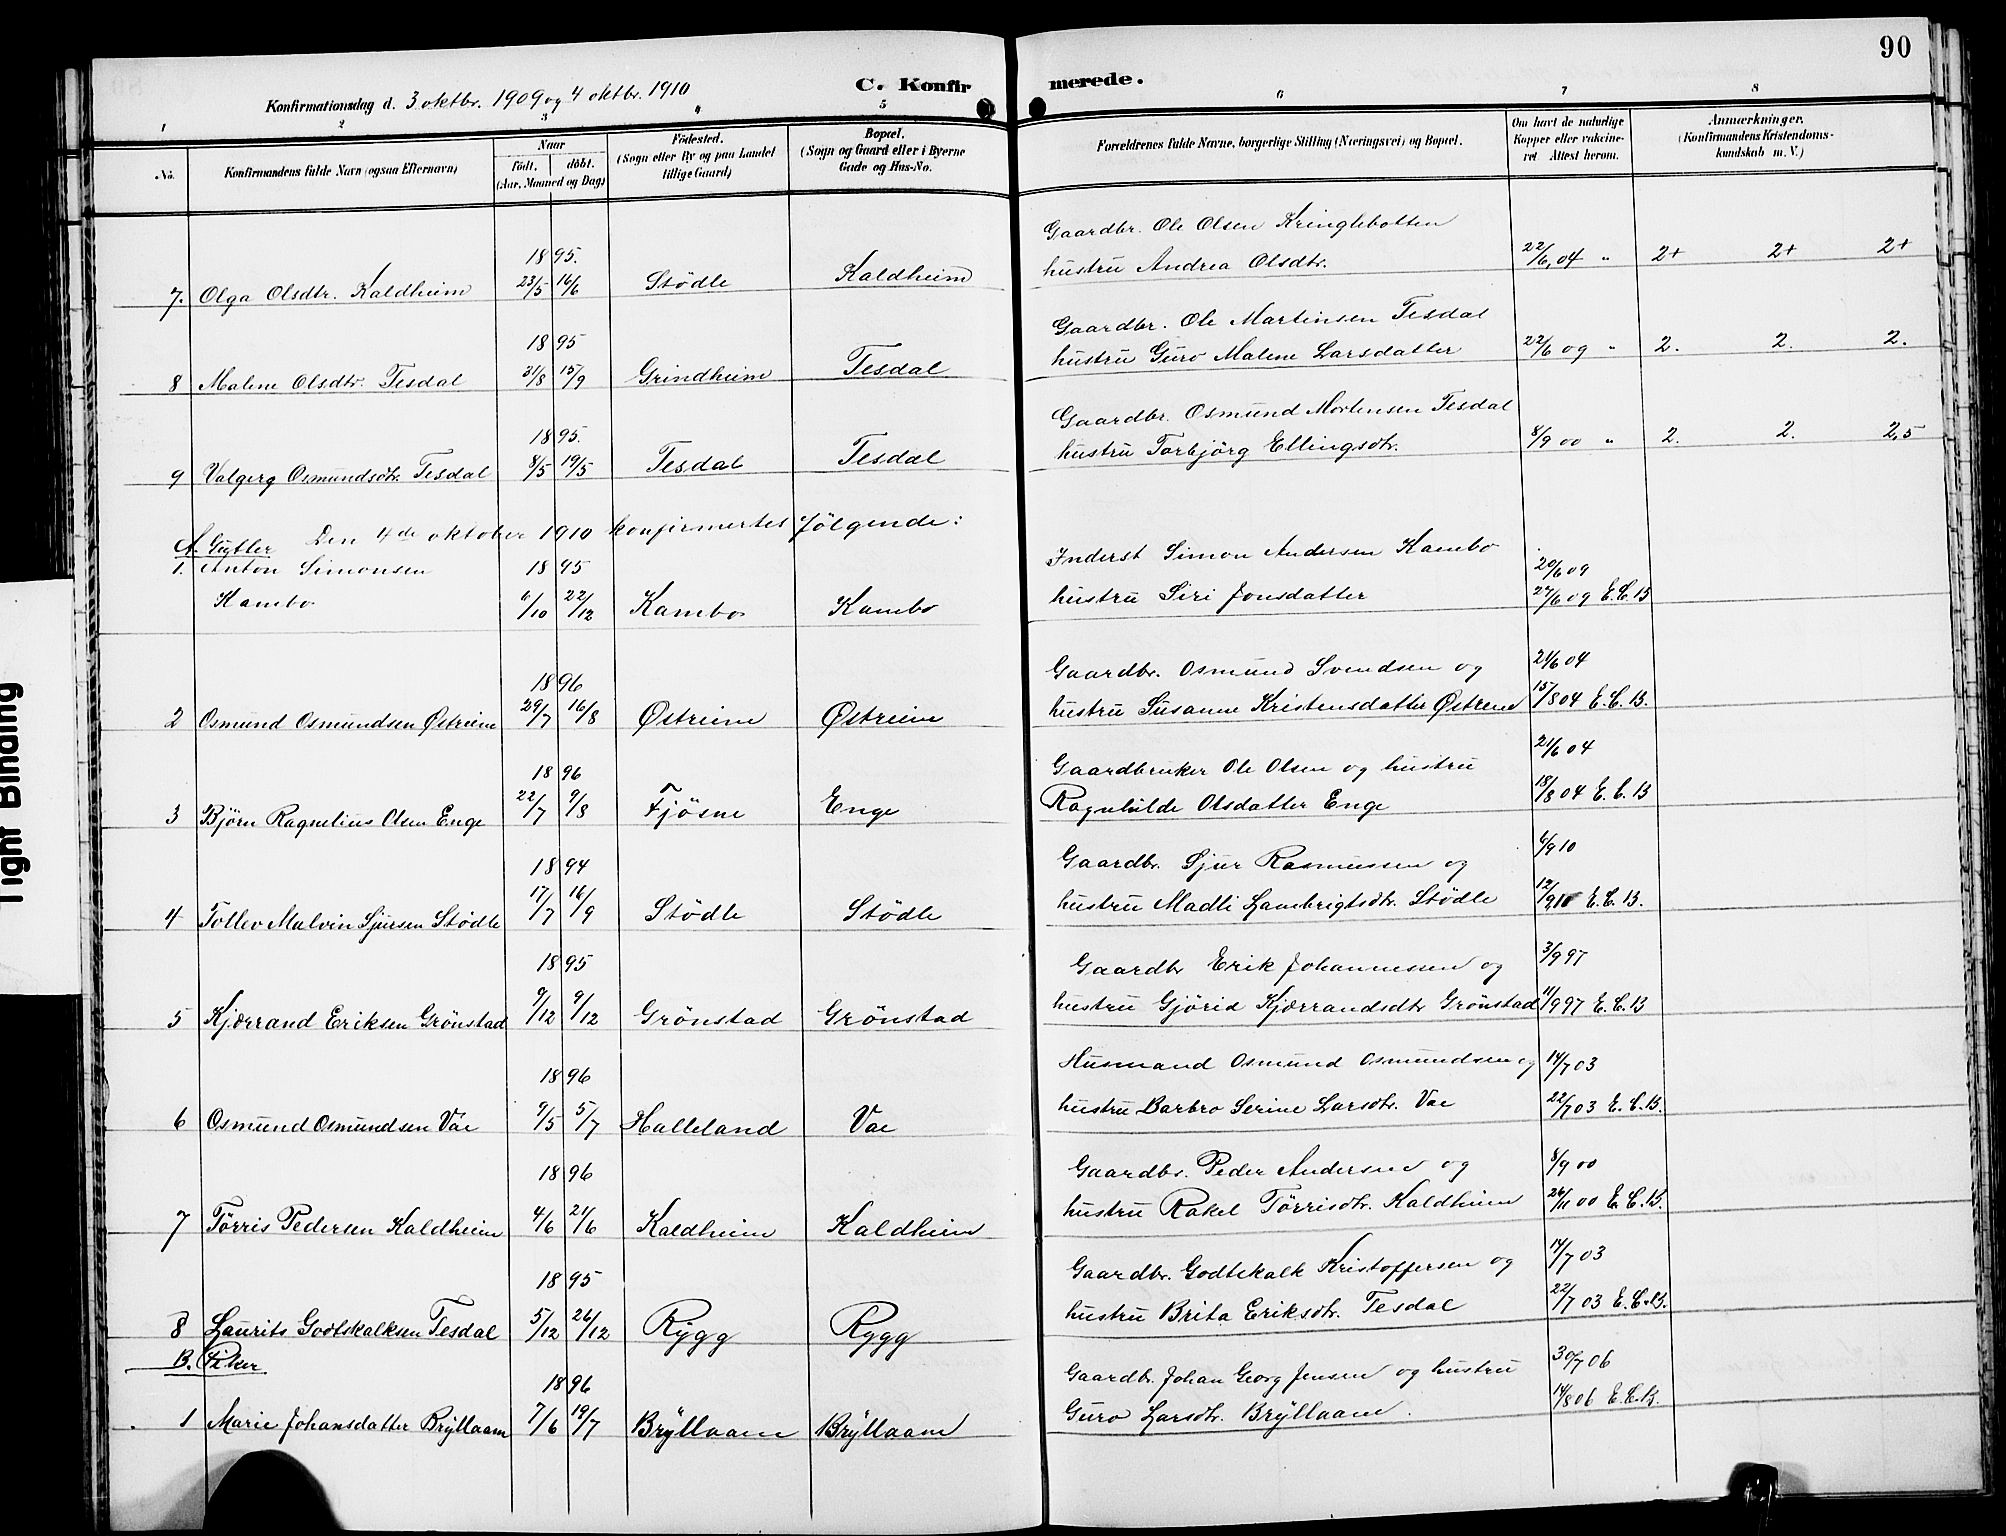 90
C. Konfirmerede.
Konfirmationsdag d. 3 oktbr. 1909 og 4 oktbr. 1910
1 2 3 4 5 6 7 8
No. Konfirmandens fulde Navn (ogsaa Efternavn) Naar født. døbt. (Aar, Maaned og Dag) Fødested. (Sogn eller By og paa Landet tillige Gaard) Bopæl. (Sogn og Gaard eller i Byerne Gade og Hus-No. Forældrenes fulde Navne, borgerlige Stilling (Næringsvei) og Bopæl. Om havt de naturlige Kopper eller vakcineret Attest herom. Anmærkninger. (Konfirmandens Kristendomskundskab m. V.)
1895. Gaardbr. Ole Olsen Kringlebotten
7. Olga Olsdtr. Kaldheim 23/5 16/6 Stödle Kaldheim hustru Andrea Olsdtr. 22/6 04 " 2+ 2+ 2+
1895 Gaardbr. Ole Martinsen Tesdal
8 Malene Olsdtr. Tesdal 31/8 15/9 Grindheim Tesdal hustru Guro Malene Larsdatter 22/6 09 " 2. 2. 2.
1895. Gaardbr. Osmund Mortensen Tesdal
9 Valgerg Osmundsdtr. Tesdal 8/5 19/5 Tesdal Tesdal hustru Torbjörg Ellingsdtr. 8/9 00 " 2. 2. 2,5
A. Gutter Den 4de oktober 1910 konfirmertes følgende:
1. Anton Simonsen 1895 Inderst Simon Andersen Kambo 20/6 09
Kambo 6/10 22/12 Kambo Kambo hustru Siri Jonsdatter 27/6 09 E. C. B
1896 Gaardbr. Osmund Svendsen og 21/6 04
2 Osmund Osmundsen Østreim 29/7 16/8 Østreim Østreim hustru Susanne Kristensdatter Østreim 15/8 04 E. C. B.
1896 Gaardbruker Ole Olsen og hustru 21/6 04
3 Björn Ragnelius Olsen Enge 22/7 9/8 Fjösne Enge Ragnhilde Olsdatter Enge 18/8 04 E. C. B
1894 Gaardbr. Sjur Rasmussen og 6/9 10
4 Tollev Malvin Sjursen Stödle 17/7 16/9 Stödle Stödle hustru Madli Lambrigtsdtr. Stödle 12/9 10 E. C. B.
1895 Gaardbr Erik Johannessen og 3/9 97
5 Kjærrand Eriksen Grönstad 9/12 9/12 Grönstad Grönstad hustru Gjörid Kjærrandsdtr Grönstad 11/9 97 E. C. B
1896 Husmand Osmund Osmundsen og 14/7 03
6 Osmund Osmundsen Vae 9/5 5/7 Halleland Vae hustru Barbro Serine Larsdtr. Vae 22/7 03 E. C. B.
1896 Gaardbr. Peder Andersen og 8/9 00
7 Tørris Pedersen Kaldheim 4/6 21/6 Kaldheim Kaldheim hustru Rakel Tørrisdtr. Kaldheim 26/11 00 E. C. B.
1895 Gaardbr. Godtskalk Kristoffersen og 14/7 03
8 Laurits Godtskalksen Tesdal 5/12 26/12 Rygg Rygg hustru Brita Eriksdtr. Tesdal 22/7 03 E. C. B.
B. Piker
1896 Gaardbr. Johan Georg Jensen og hustru 30/7 06
1 Marie Johansdatter Bryllaam 7/6 19/7 Bryllaam Bryllaam Guro Larsdtr. Bryllaam. 14/8 06 E. C. B.
Tight Binding